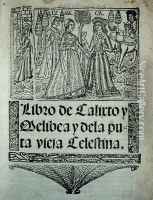 Libro de Calixto y
Melibea y dela pu
ta vieja Celestina.